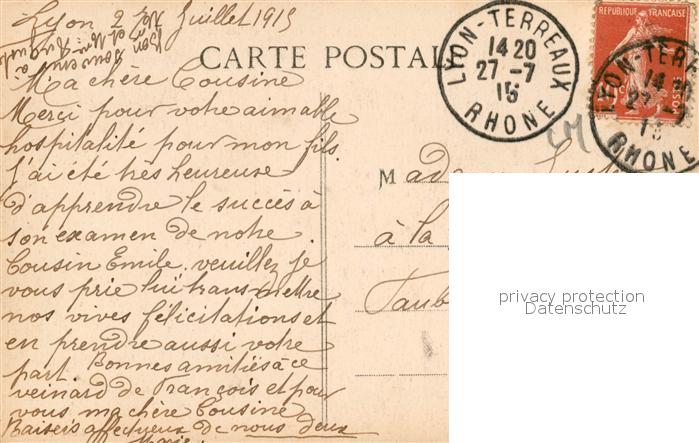 Lyon 27 Juillet 1915
bon
souvenir
à
CARTE POSTALE
Ma chère Cousine
Merci pour votre aimable
hospitalité pour mon fils.
J'ai été très heureuse
d'apprendre le succès à
son examen de notre
Cousin Emile. veuillez je
vous prie lui transmettre
nos vives félicitations et
en prendre aussi votre
part. Bonnes amitiés à ce
veinard de François et pour
vous ma chère Cousine
Baisers affectueux de nous deux
LYON-TERREAUX
14 20
27 -7
15
RHONE
REPUBLIQUE FRANÇAISE
POSTES
LYON-TERR
14
27
15
RHONE
Mad
à la
Taub
privacy protection
Datenschutz